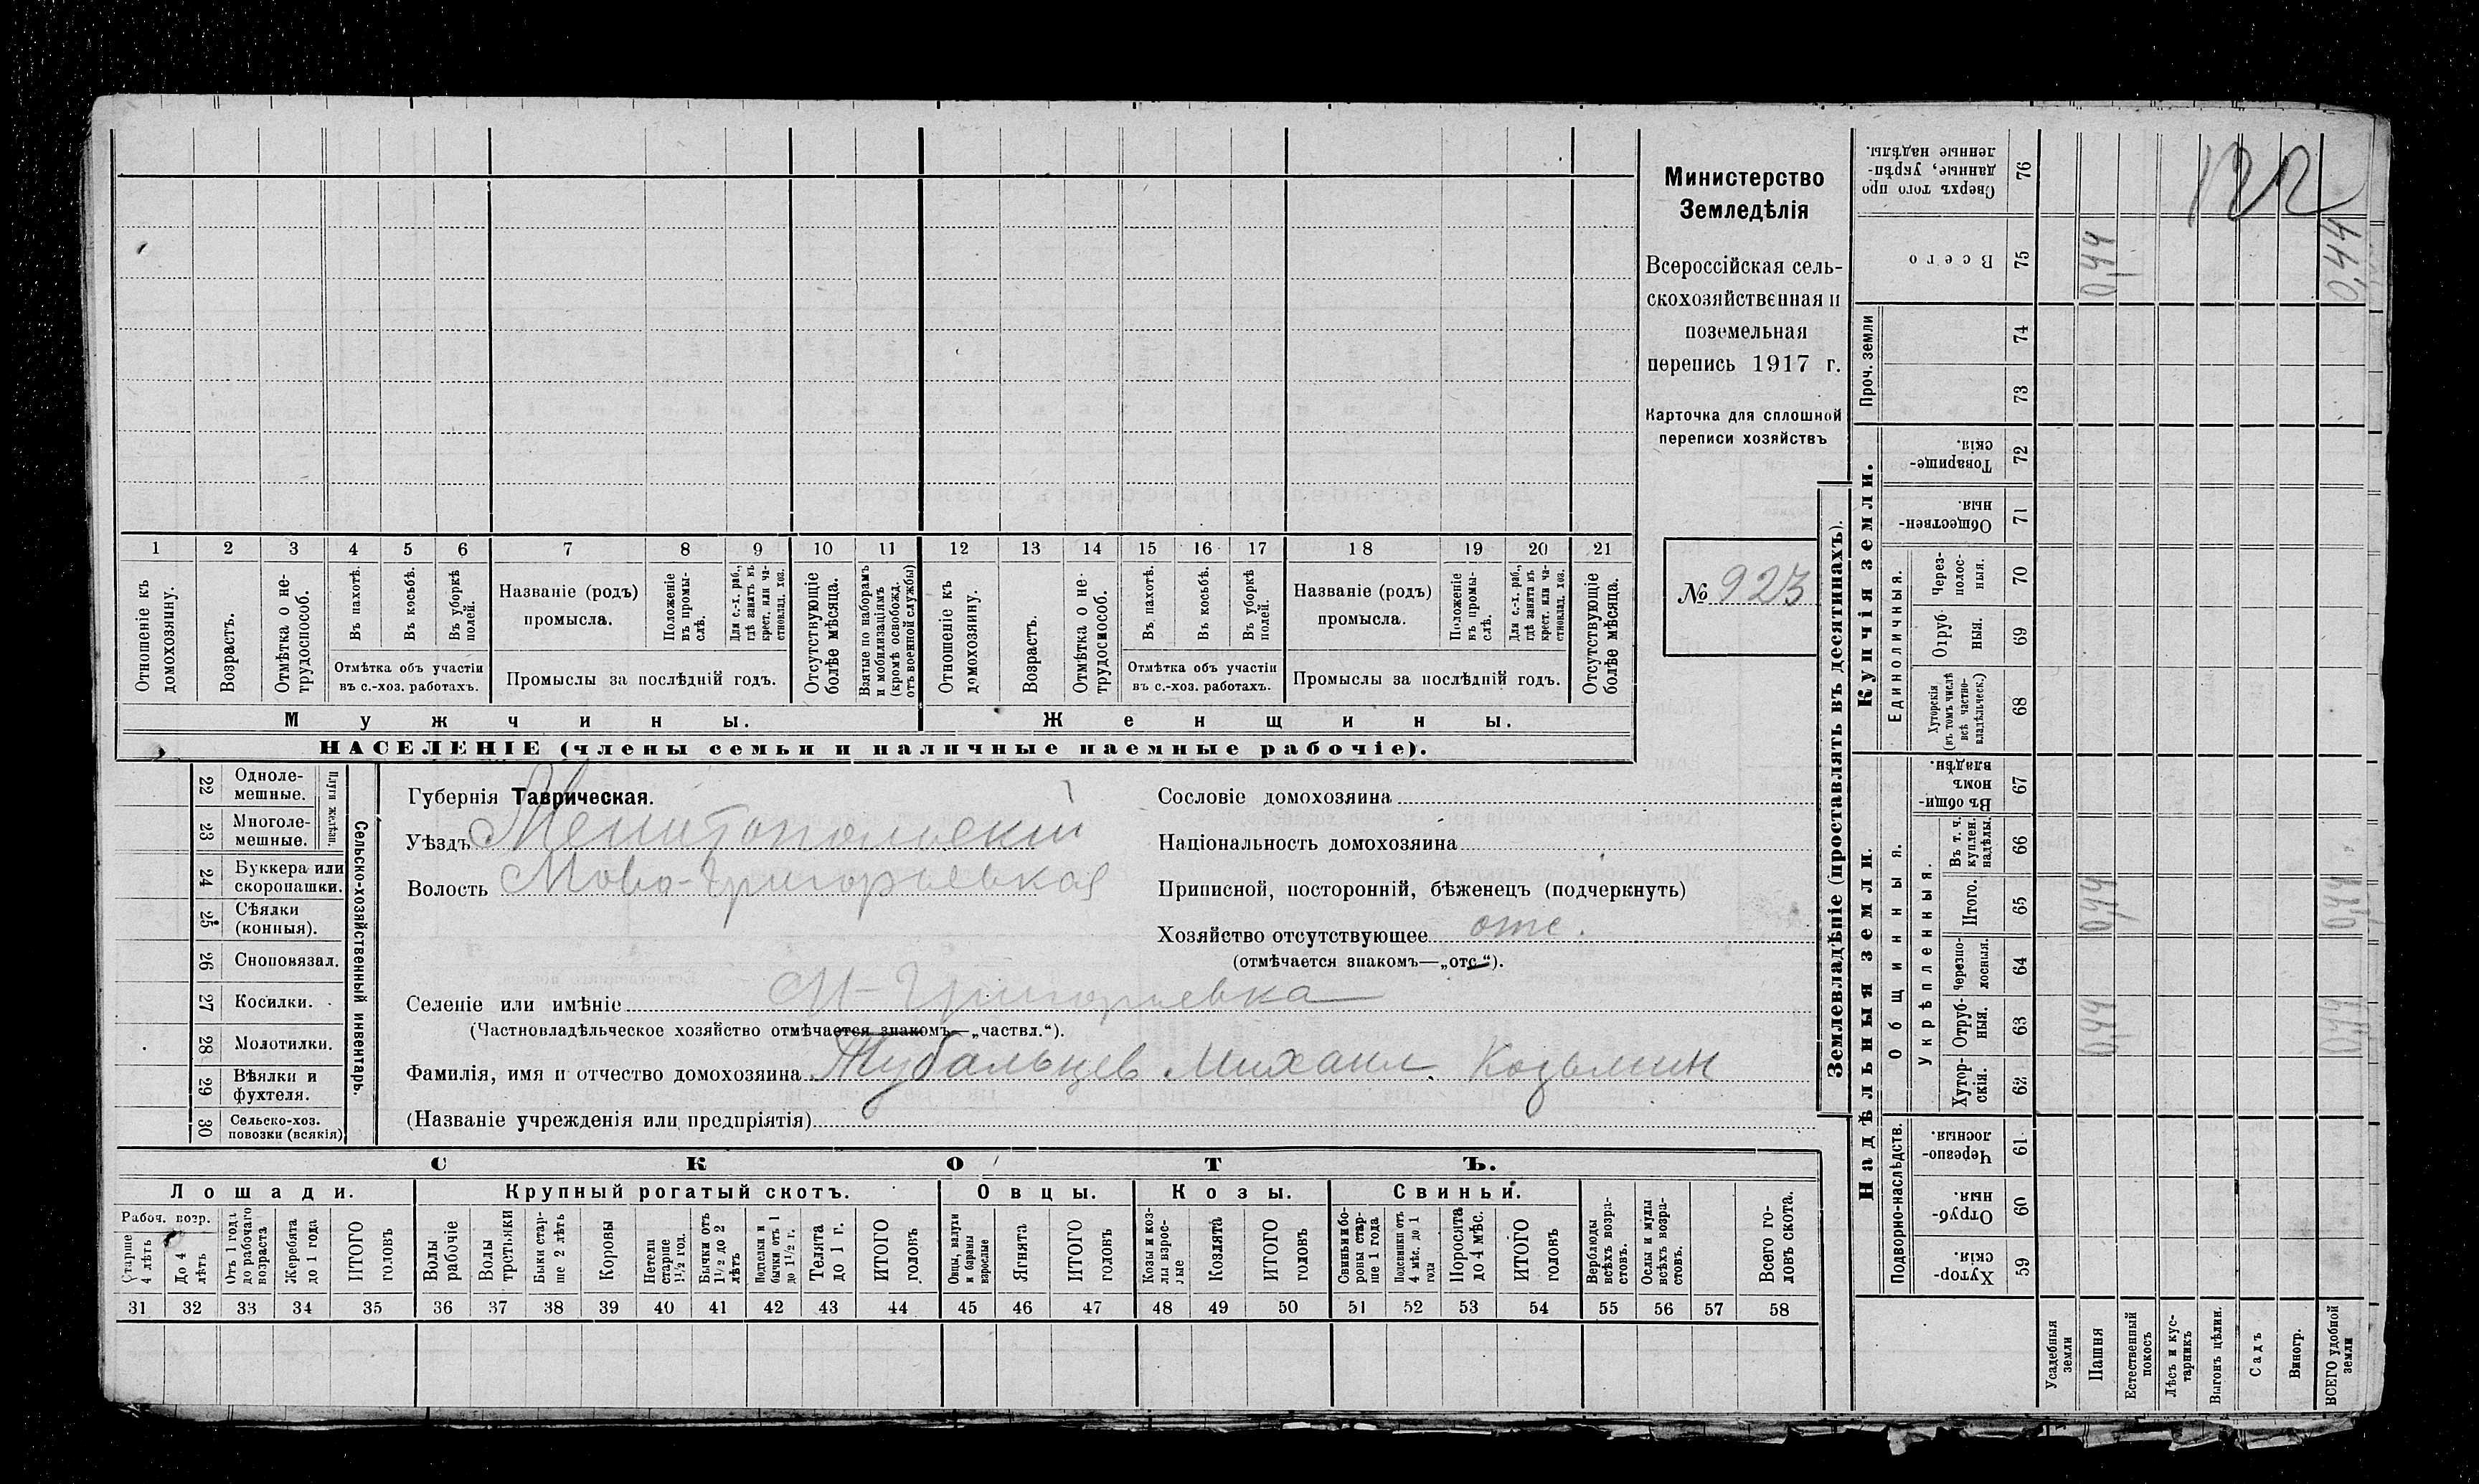 Министерство
Земледѣлія
Всероссійская сель-
скохозяйственная и
поземельная
перепись 1917 г.
Карточка для сплошной
переписи хозяйствъ
№ 923
122
1 2 3 4 5 6 7 8 9 10 11 12 13 14 15 16 17 18 19 20 21
Отношеніе къ домохозяину.
Возрастъ.
Отмѣтка о не-трудоспособ.
Въ пахотѣ.
Въ косьбѣ.
Въ уборкѣ полей.
Отмѣтка объ участіи
въ с.-хоз. работахъ.
Названіе (родъ)
промысла.
Положеніе въ промы-слѣ.
Для с.-х. раб., гдѣ занятъ въ крест. или ча-стновлад. хоз.
Промыслы за послѣдній годъ.
Отсутствующіе болѣе мѣсяца.
Взятые по наборамъ и мобилизаціямъ (кромѣ освобожд. отъ военной службы)
Отношеніе къ домохозяину.
Возрастъ.
Отмѣтка о не-трудоспособ.
Въ пахотѣ.
Въ косьбѣ.
Въ уборкѣ полей.
Отмѣтка объ участіи
въ с.-хоз. работахъ.
Названіе (родъ)
промысла.
Положеніе въ промы-слѣ.
Для с.-х. раб., гдѣ занята въ крест. или ча-стновлад. хоз.
Промыслы за послѣдній годъ.
Отсутствующіе болѣе мѣсяца.
Мужчины. Женщины.
НАСЕЛЕНІЕ (члены семьи и наличные наемные рабочіе).
22 Одноле-мешные.
23 Многоле-мешные.
Плуги желѣзн.
24 Буккера или скоропашки.
25 Сѣялки (конныя).
26 Сноповязал.
27 Косилки.
28 Молотилки.
29 Вѣялки и фухтеля.
30 Сельско-хоз. повозки (всякія)
Сельско-хозяйственный инвентарь.
Губернія Таврическая.
Уѣздъ Мелитопольский
Волость Ново-Григорьевкая
Сословіе домохозяина
Національность домохозяина
Приписной, посторонній, бѣженецъ (подчеркнуть)
Хозяйство отсутствующее отс.
(отмѣчается знакомъ—„отс.“).
Селеніе или имѣніе Н-Григорьевка
(Частновладѣльческое хозяйство отмѣчается знакомъ—„частвл.“).
Фамилія, имя и отчество домохозяина Жубальцев Михаил. Козьмин
(Названіе учрежденія или предпріятія)
СКОТЪ.
Лошади. Крупный рогатый скотъ. Овцы. Козы. Свиньи.
Рабоч. возр.
Старше 4 лѣтъ
До 4 лѣтъ
Отъ 1 года до рабочаго возраста
Жеребята до 1 года
ИТОГО головъ
Волы рабочіе
Волы третьяки
Быки стар-ше 2 лѣтъ
Коровы
Нетели старше 1½ год.
Бычки отъ 1½ до 2 лѣтъ
Подтелки и бычки отъ 1 до 1½ г.
Телята до 1 г.
ИТОГО головъ
Овцы, валухи и бараны взрослые
Ягнята
ИТОГО головъ
Козы и коз-лы взрос-лые
Козлята
ИТОГО головъ
Свиньи и бо-ровы стар-ше 1 года
Подсвинки отъ 4 мѣс. до 1 года
Поросята до 4 мѣс.
ИТОГО головъ
Верблюды всѣхъ возра-стовъ.
Ослы и мулы всѣхъ возра-стовъ.
Всего го-ловъ скота.
31 32 33 34 35 36 37 38 39 40 41 42 43 44 45 46 47 48 49 50 51 52 53 54 55 56 57 58
Землевладѣніе (проставлять въ десятинахъ).
Надѣльныя земли. Купчія земли. Проч. земли
Подворно-наслѣдств.
Общинныя.
Укрѣпленныя.
Единоличныя.
Сверхъ того про данные, укрѣп-ленные надѣлы. 76
Всего 75 0,44 0,44
74
73
Товарище-скія. 72
Обществен-ныя. 71
Через-полос-ныя. 70
Отруб ныя. 69
Хуторскія (въ томъ числѣ всѣ частно-владѣльческ.) 68
Въ общи-номъ владѣн. 67
Въ т. ч. куплен. надѣлы. 66
Итого. 65 0,44 0,44
Черезпо-лосныя. 64
Отруб-ныя. 63 0,44 0,44
Хутор-скія. 62
Черезпо-лосныя. 61
Отруб-ныя. 60
Хутор-скія. 59
Усадебныя земли
Пашня
Естественный покосъ
Лѣсъ и кус-тарникъ
Выгонъ цѣлин.
Садъ
Виногр.
ВСЕГО удобной земли